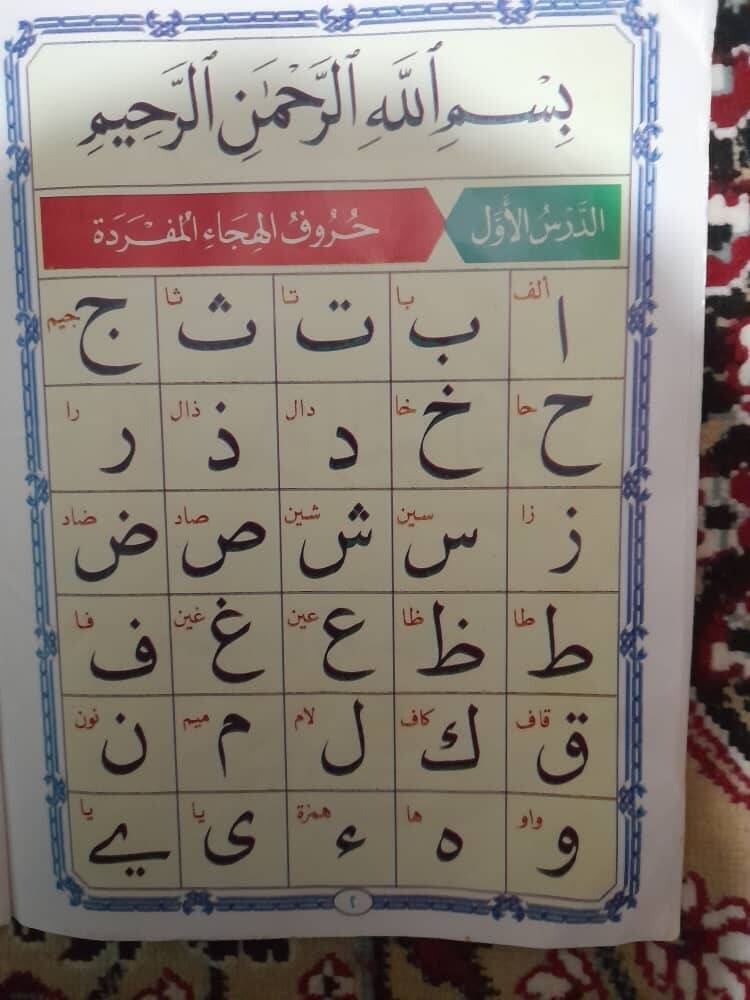 بِسْمِ ٱللَّهِ ٱلرَّحْمَٰنِ ٱلرَّحِيمِ
الدَّرْسُ الْأَوَّل حُرُوفُ الهِجَاءِ المُفْرَدَة
ا ألف ب با ت تا ث ثا ج جيم
ح حا خ خا د دال ذ ذال ر را
ز زا س سين ش شين ص صاد ض ضاد
ط طا ظ ظا ع عين غ غين ف فا
ق قاف ك كاف ل لام م ميم ن نون
و واو ه ها ء همزة ى يا ے يا
٢